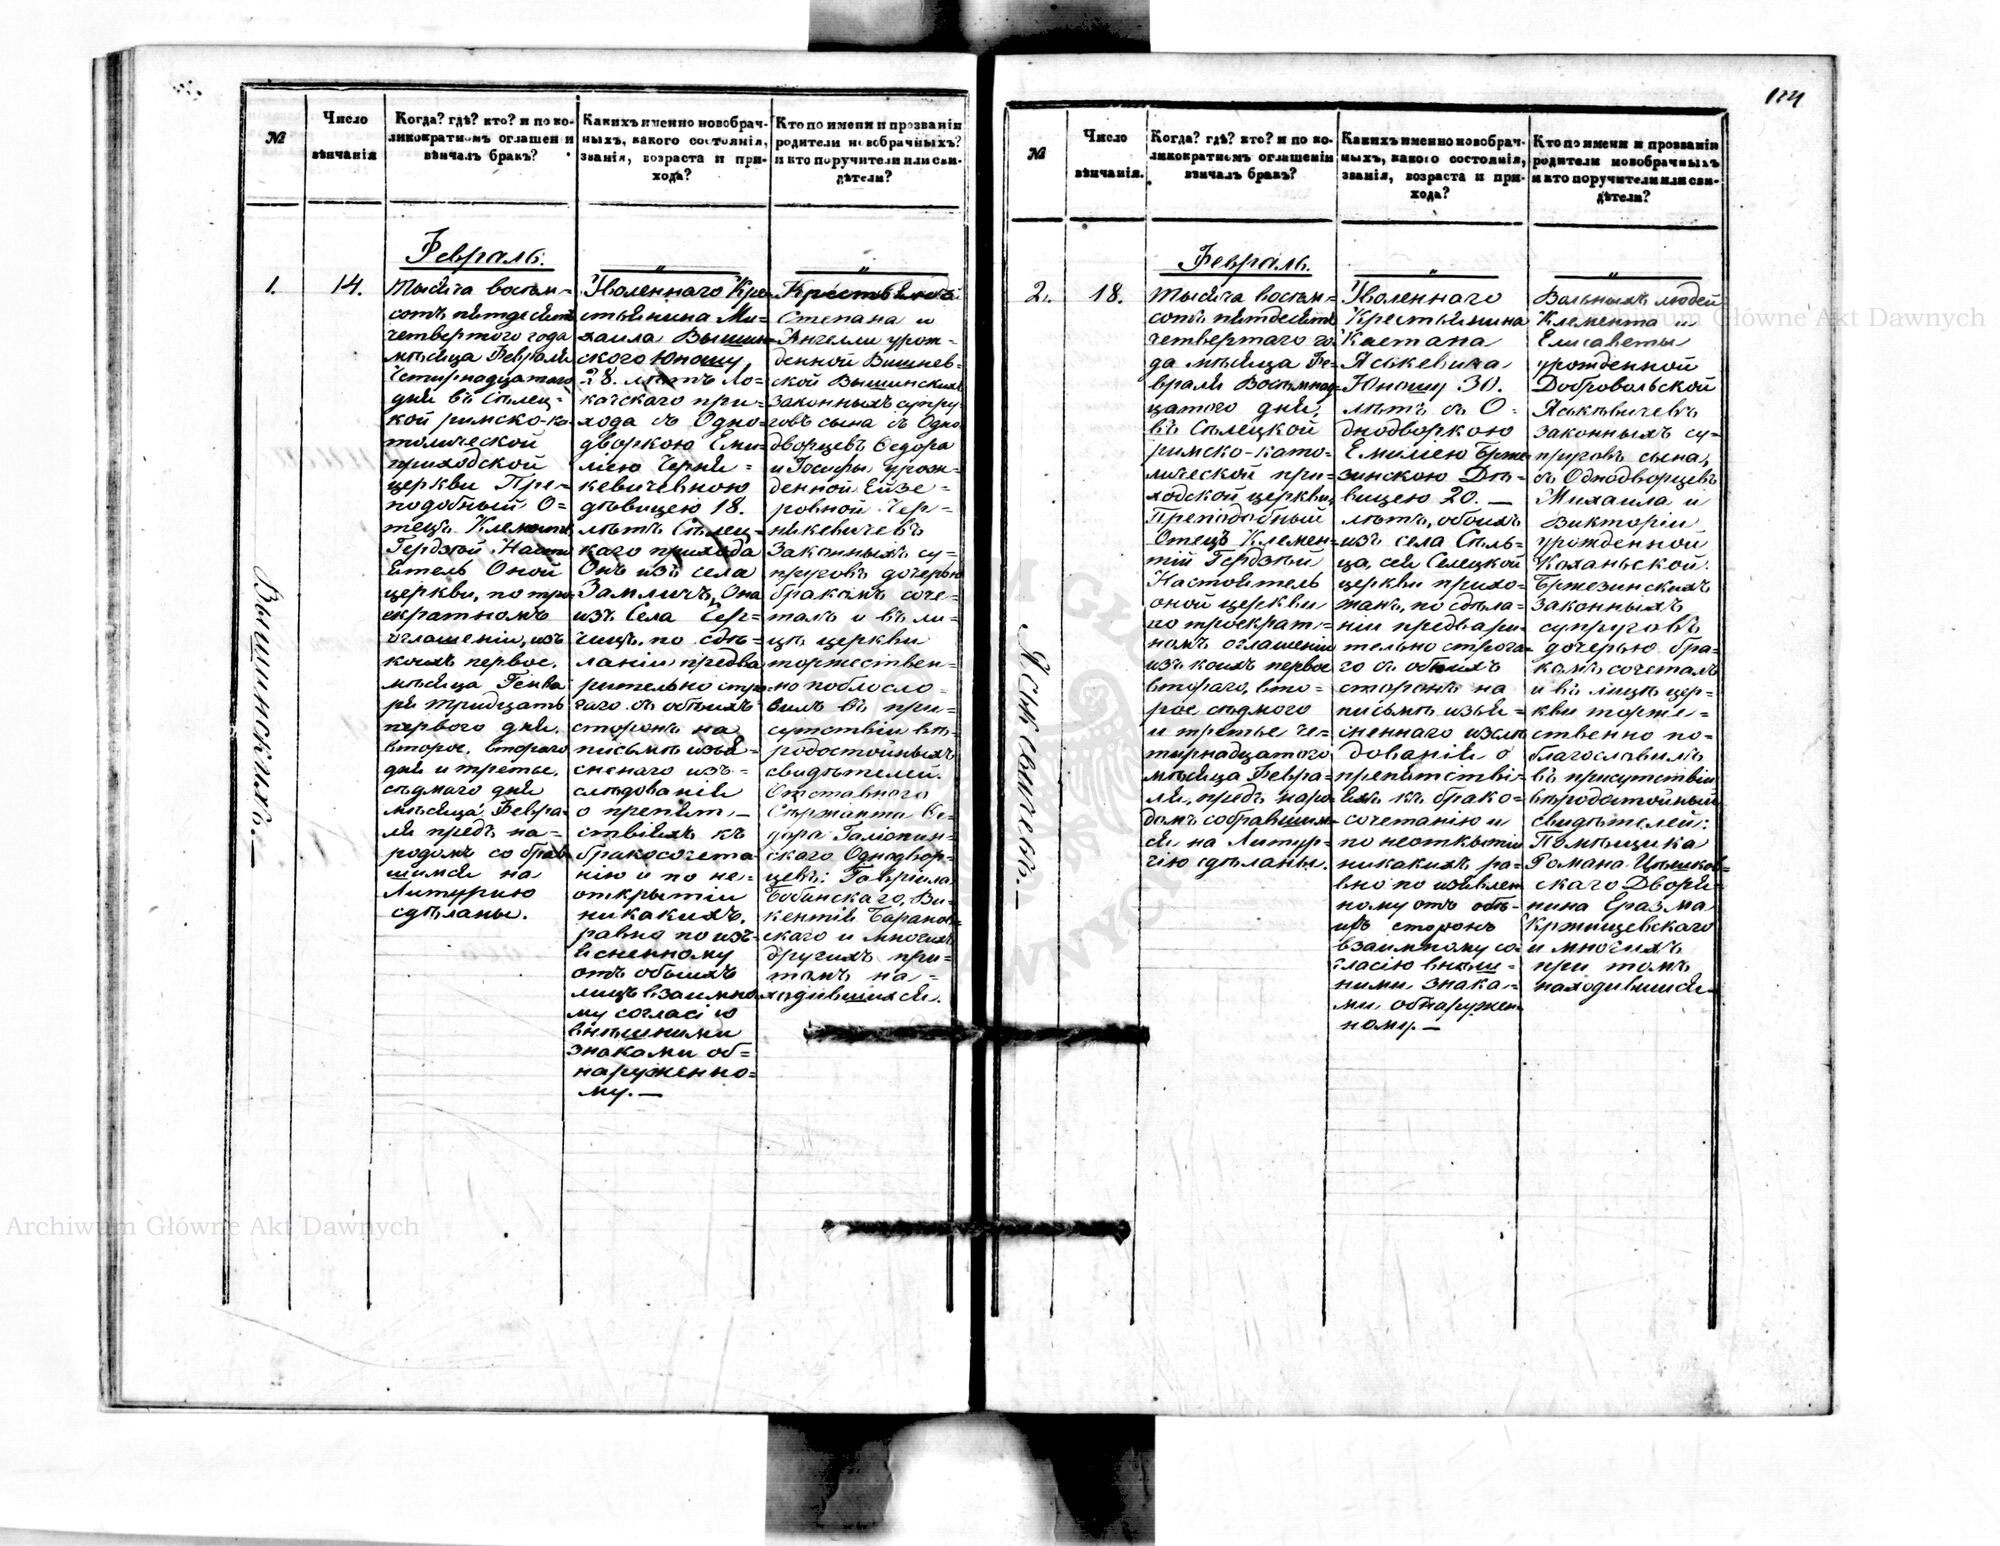 №
Число
вѣнчанія
Когда? гдѣ? кто? и по ко-
ликократномъ оглашеніи
вѣнчалъ бракъ?
Какихъ именно новобрач-
ныхъ, какого состоянія,
званія, возраста и при-
хода?
Кто по имени и прозванію
родители новобрачныхъ?
и кто поручители или сви-
дѣтели?
Вышинскій.—
1.
14.
Февраль.
Тысяча восем-
сотъ пятдесятъ
четвертого года
мѣсяца Февраля
Четырнадцатого
дня въ Сѣлец-
кой римско-ка
толической
приходской
церкви Пре-
подобный О-
тецъ Клементъ
Гердзѣй Насто
Ятель Оной
церкви, по тро
екратномъ
оглашеніи, изъ
коихъ первое,
мѣсяца Генва
ря тридцать
первого дня,
второе, второго
дня и третье,
сѣдмого дня
мѣсяца Февра-
ля предъ на-
родомъ собрав
шимся на
Литургію
сдѣланы.
"
Уволеннаго Кре
стьянина Ми-
хаила Вышин
ского Юношу,
28. лѣтъ Ло-
качского при-
хода съ Одно-
дворкою Еми-
ліею Черня-
кевичевною
дѣвицею 18.
лѣтъ Сѣлец-
каго прихода
Онъ изъ села
Замличъ, Она
изъ Села Сер-
чицъ, по сдѣ-
ланіи предва
рительно стро
гаго съ обоихъ
сторонъ на
письмѣ изъя-
сненаго изъ-
слѣдованія
о препят-
ствіяхъ къ
бракосочета
нію и по не-
открытіи
никакихъ,
равно по изъ-
Ясненному
отъ обоихъ
лицъ взаимно
му согласію
внѣшними
знаками об-
наруженно-
му.—
"
Крестьянъ
Степана и
Ангелли урож-
денной Вишнев-
ской Вышинскихъ
законныхъ супру
говъ сына съ Одно
дворцевъ Ѳедора
и Іосифы урож-
денной Ейзе-
ровной Чер-
някевичевъ
Законныхъ су-
пруговъ дочерью
бракомъ соче-
талъ и въ ли-
цѣ церкви
торжествен-
но поблосло-
вилъ въ при-
сутствіи вѣ-
родостойныхъ
свидѣтелей:
Отставного
Сержанта Ѳе-
дора Галіопин-
ского Однодвор-
цевъ: Гавріила
Бобинскаго, Ви-
кентія Баранов-
скаго и многихъ
другихъ при-
томъ на-
ходившихся.
114
№
Число
вѣнчанія.
Когда? гдѣ? кто? и по ко-
ликократномъ оглашеніи
вѣнчалъ бракъ?
Какихъ именно новобрач-
ныхъ, какого состоянія,
званія, возраста и при-
хода?
Кто по имени и прозванію
родители новобрачныхъ
и кто поручители или сви-
дѣтели?
Яськевичъ.—
2.
18.
Февраль.
Тысяча восем-
сотъ пятдесятъ
четвертаго го
да мѣсяца Фе-
враля Восемнад-
цатого дня,
въ Сѣлецкой
римско-като-
лической при-
ходской церкви,
Преподобный
Отецъ Клемен-
тій Гердзѣй
Настоятель
оной церкви
по троекрат-
номъ оглашеніи
изъ коихъ первое
второго, вто-
рое сѣдмого
и третье че-
тырнадцатого
мѣсяца Февра-
ля, предъ наро
домъ собравшим-
ся на Литур-
гію сдѣланы.
"
Уволеннаго
Крестьянина
Каетана
Яськевича
Юношу 30.
лѣтъ съ О-
днодворкою
Емиліею Брже
зинскою Дѣ-
вицею 20.—
лѣтъ, обоихъ
изъ села Сѣль-
ца, сей Селецкой
церкви прихо-
жанъ, по сдѣла-
ніи предвари-
тельно строга-
го съ обоихъ
сторонъ на
письмѣ изъя-
сненнаго изслѣ
дованія о
препятстві-
яхъ къ брако-
сочетанію и
по неоткрытіи
никакихъ, ра-
вно по изъявлен
ному отъ обѣ-
ихъ сторонъ
взаимному со-
гласію внѣш-
ними знака-
ми обнаружен
ному.—
"
Вольныхъ людей
Клемента и
Елисаветы
урожденной
Добровольской
Яськѣвичевъ
законныхъ су-
пруговъ сына,
съ Однодворцевъ
Михаила и
Викторіи
урожденной
Коханьской
Бржезинскихъ
Законныхъ
супруговъ
дочерью бра-
комъ сочеталъ
и въ лицѣ цер-
кви торже-
ственно по-
благославилъ
въ присутствіи
вѣродостойныхъ
свидѣтелей:
Помѣщика
Романа Цѣшков-
скаго Дворя-
нина Еразма
Кржищевскаго
и многихъ
при томъ
находившися
Archiwum Główne Akt Dawnych
Archiwum Główne Akt Dawnych